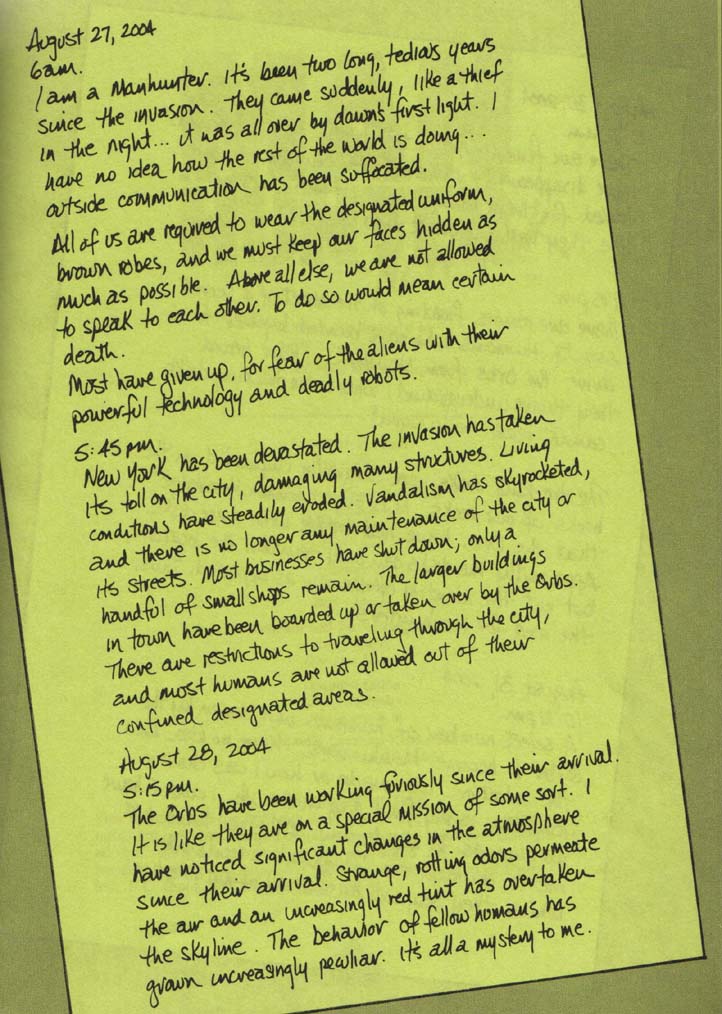 August 27, 2004
6am.
I am a Manhunter. It's been two long, tedious years
since the invasion. They came suddenly, like a thief
in the night... it was all over by dawn's first light. I
have no idea how the rest of the world is doing...
outside communication has been suffocated.
All of us are required to wear the designated uniform,
brown robes, and we must keep our faces hidden as
much as possible. Above all else, we are not allowed
to speak to each other. To do so would mean certain
death.
Most have given up, for fear of the aliens with their
powerful technology and deadly robots.
5:45 pm.
New York has been devastated. The invasion has taken
its toll on the city, damaging many structures. Living
conditions have steadily eroded. Vandalism has skyrocketed,
and there is no longer any maintenance of the city or
its streets. Most businesses have shut down; only a
handful of small shops remain. The larger buildings
in town have been boarded up or taken over by the Orbs.
There are restrictions to traveling through the city,
and most humans are not allowed out of their
confined designated areas.
August 28, 2004
5:15 pm.
The Orbs have been working furiously since their arrival.
It is like they are on a special mission of some sort. I
have noticed significant changes in the atmosphere
since their arrival. Strange, rotting odors permeate
the air and an increasingly red tint has overtaken
the skyline. The behavior of fellow humans has
grown increasingly peculiar. It's all a mystery to me.